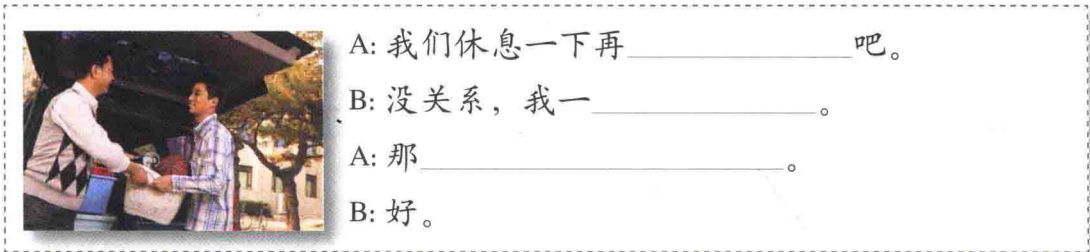 A: 我们休息一下再____________吧。
B: 没关系，我一____________。
A: 那____________________。
B: 好。